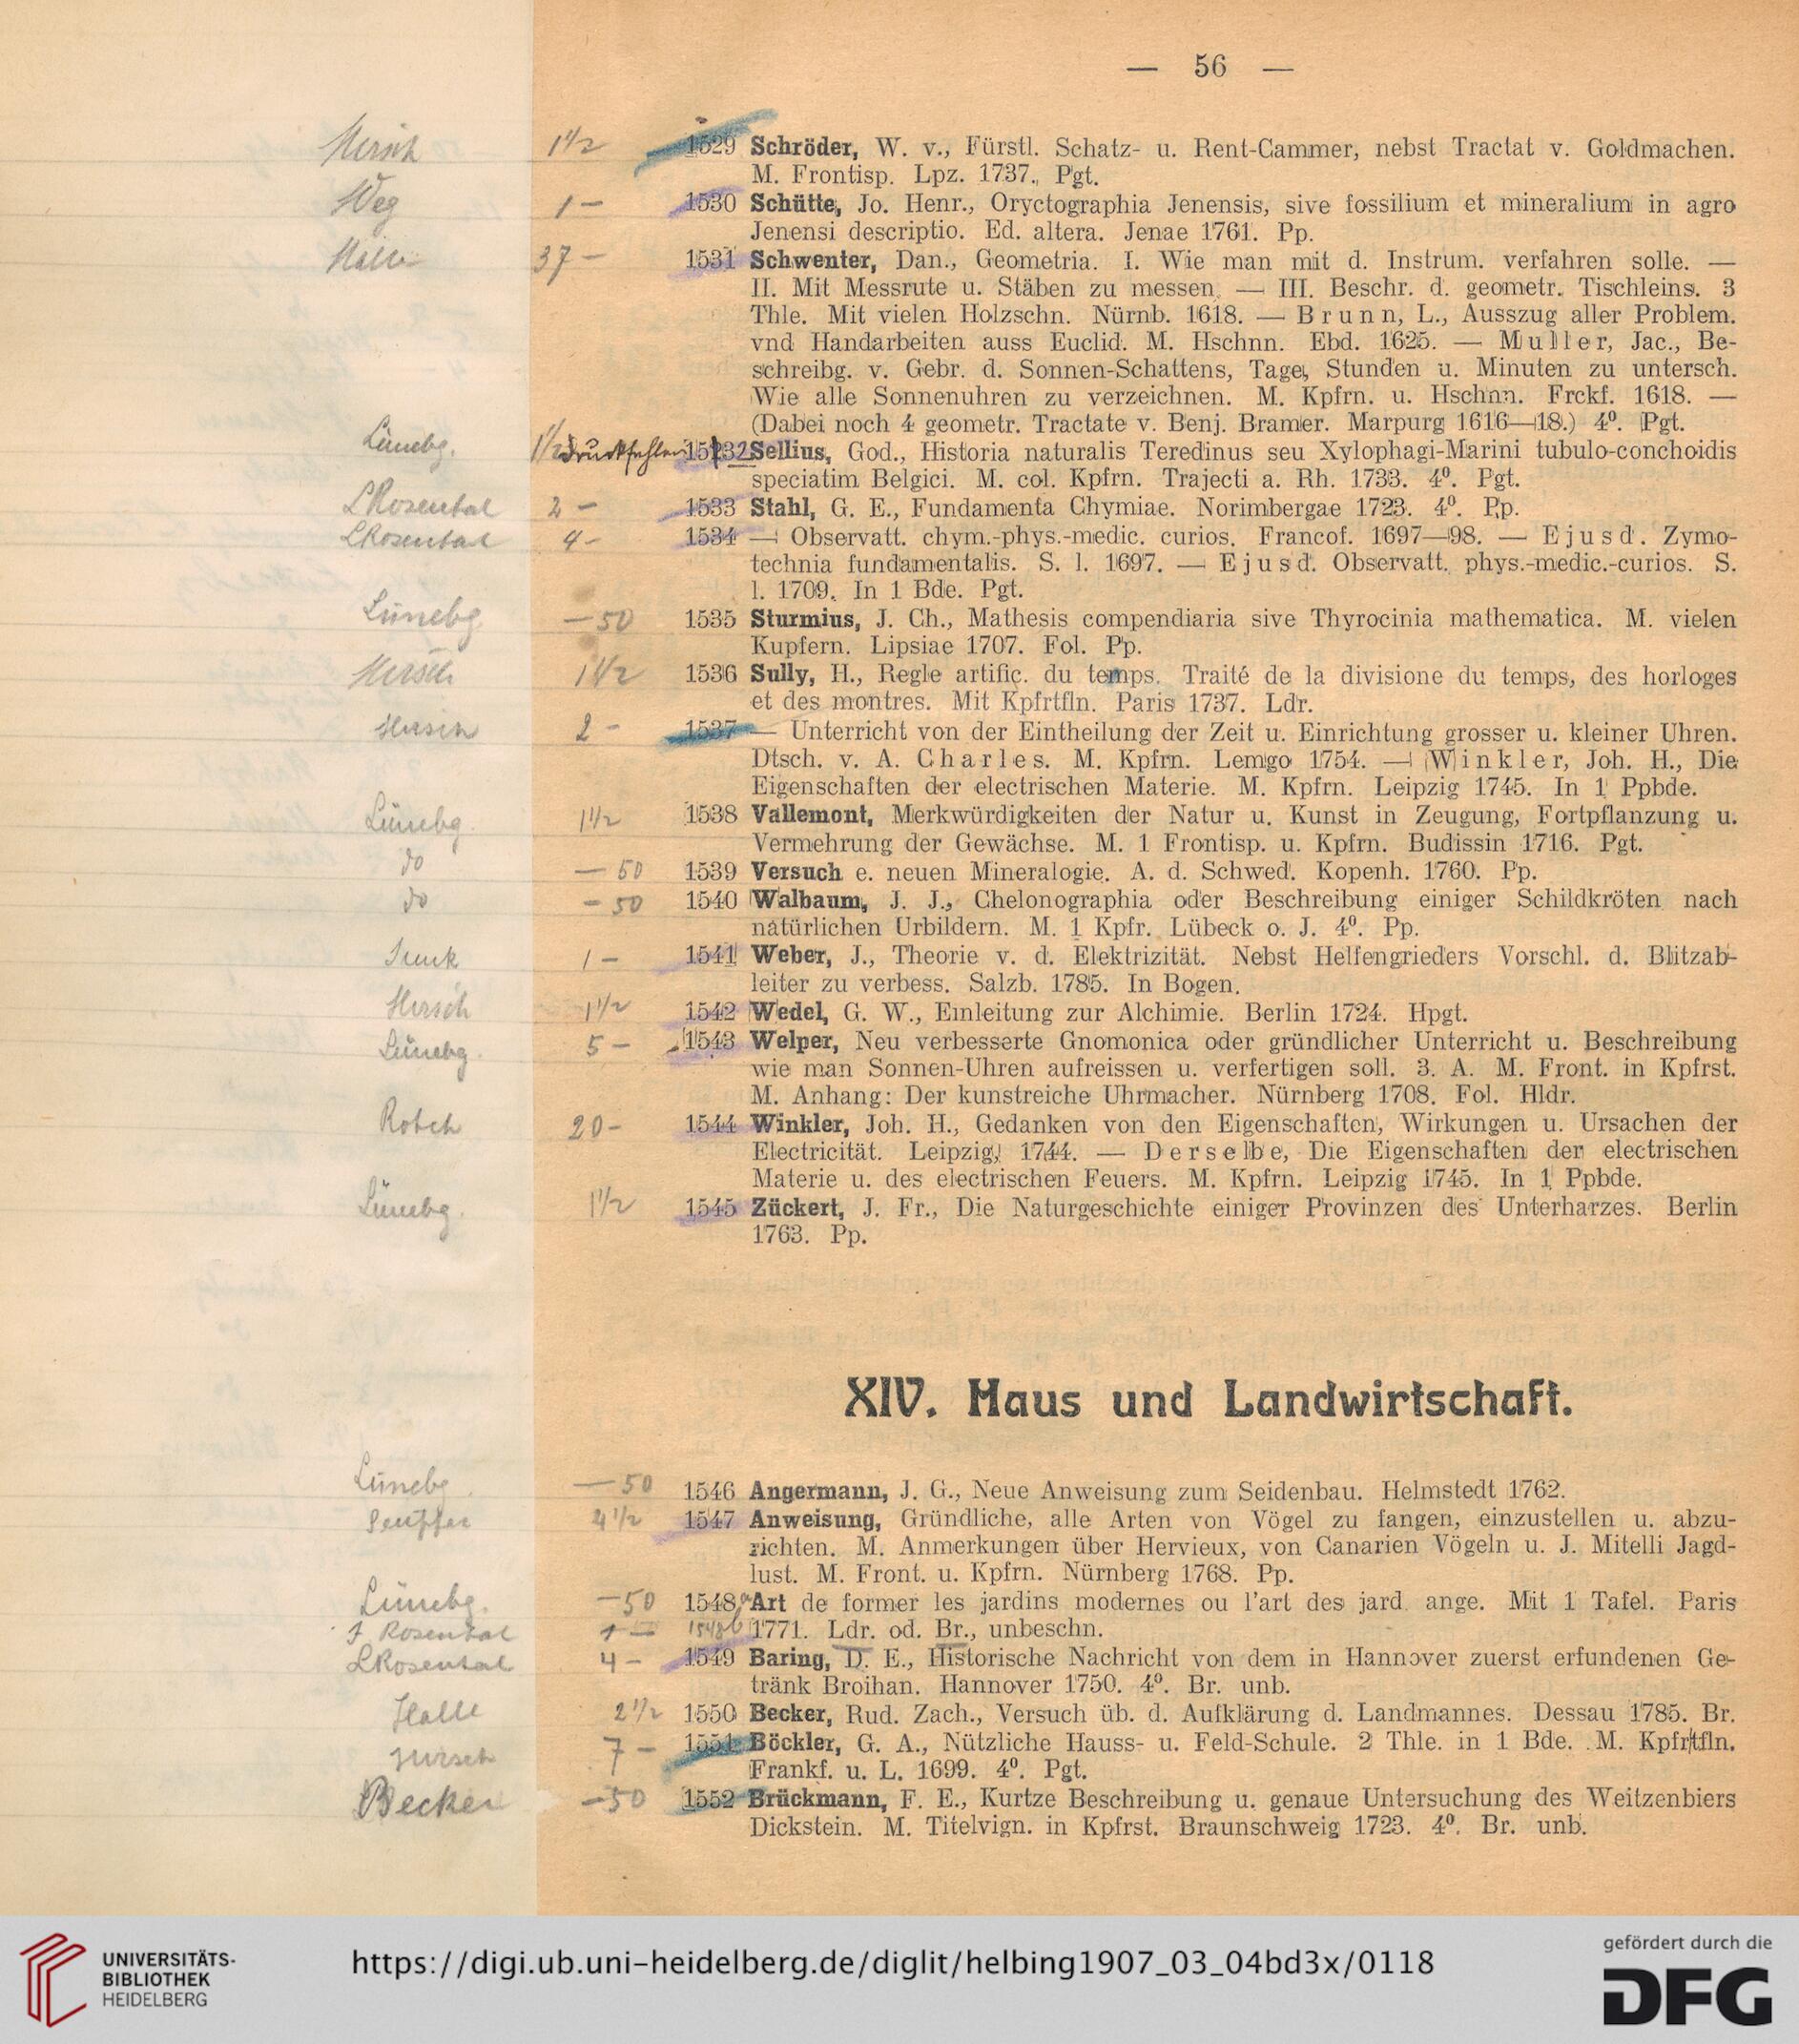 — 56 —
Hirsch 1 1/2 1529 Schröder, W. v., Fürstl. Schatz- u. Rent-Cammer, nebst Tractat v. Goldmachen.
M. Frontisp. Lpz. 1737. Pgt.
Weg 1 — 1530 Schütte, Jo. Henr., Oryctographia Jenensis, sive fossilium et mineralium in agro
Jenensi descriptio. Ed. altera. Jenae 1761. Pp.
Halle 37 — 1531 Schwenter, Dan., Geometria. I. Wie man mit d. Instrum. verfahren solle. —
II. Mit Messrute u. Stäben zu messen. — III. Beschr. d. geometr. Tischleins. 3
Thle. Mit vielen Holzschn. Nürnb. 1618. — Brunn, L., Ausszug aller Problem.
vnd Handarbeiten auss Euclid. M. Hschnn. Ebd. 1625. — Muller, Jac., Be-
schreibg. v. Gebr. d. Sonnen-Schattens, Tage, Stunden u. Minuten zu untersch.
Wie alle Sonnenuhren zu verzeichnen. M. Kpfrn. u. Hschnn. Frckf. 1618. —
(Dabei noch 4 geometr. Tractate v. Benj. Bramer. Marpurg 1616—18.) 4⁰. Pgt.
Lünebg. 1 1/2 Druckfehler 1532 Sellius, God., Historia naturalis Teredinus seu Xylophagi-Marini tubulo-conchoidis
speciatim Belgici. M. col. Kpfrn. Trajecti a. Rh. 1733. 4⁰. Pgt.
L Rosental 2 — 1533 Stahl, G. E., Fundamenta Chymiae. Norimbergae 1723. 4⁰. Pp.
L Rosental 4 - 1534 — Observatt. chym.-phys.-medic. curios. Francof. 1697—98. — Ejusd. Zymo-
technia fundamentalis. S. l. 1697. — Ejusd. Observatt. phys.-medic.-curios. S.
l. 1709. In 1 Bde. Pgt.
Lünebg — 50 1535 Sturmius, J. Ch., Mathesis compendiaria sive Thyrocinia mathematica. M. vielen
Kupfern. Lipsiae 1707. Fol. Pp.
Hirsch 1 1/2 1536 Sully, H., Regle artific. du temps. Traité de la divisione du temps, des horloges
et des montres. Mit Kpfrtfln. Paris 1737. Ldr.
Hirsch 2 - 1537 — Unterricht von der Eintheilung der Zeit u. Einrichtung grosser u. kleiner Uhren.
Dtsch. v. A. Charles. M. Kpfrn. Lemgo 1754. — Winkler, Joh. H., Die
Eigenschaften der electrischen Materie. M. Kpfrn. Leipzig 1745. In 1 Ppbde.
Lünebg. 1 1/2 1538 Vallemont, Merkwürdigkeiten der Natur u. Kunst in Zeugung, Fortpflanzung u.
Vermehrung der Gewächse. M. 1 Frontisp. u. Kpfrn. Budissin 1716. Pgt.
do — 50 1539 Versuch e. neuen Mineralogie. A. d. Schwed. Kopenh. 1760. Pp.
do - 50 1540 Walbaum, J. J., Chelonographia oder Beschreibung einiger Schildkröten nach
natürlichen Urbildern. M. 1 Kpfr. Lübeck o. J. 4⁰. Pp.
Junk 1 — 1541 Weber, J., Theorie v. d. Elektrizität. Nebst Helfengrieders Vorschl. d. Blitzab-
leiter zu verbess. Salzb. 1785. In Bogen.
Hirsch 1 1/2 1542 Wedel, G. W., Einleitung zur Alchimie. Berlin 1724. Hpgt.
Lünebg. 5 — 1543 Welper, Neu verbesserte Gnomonica oder gründlicher Unterricht u. Beschreibung
wie man Sonnen-Uhren aufreissen u. verfertigen soll. 3. A. M. Front. in Kpfrst.
M. Anhang: Der kunstreiche Uhrmacher. Nürnberg 1708. Fol. Hldr.
20 - 1544 Winkler, Joh. H., Gedanken von den Eigenschaften, Wirkungen u. Ursachen der
Electricität. Leipzig, 1744. — Derselbe, Die Eigenschaften der electrischen
Materie u. des electrischen Feuers. M. Kpfrn. Leipzig 1745. In 1 Ppbde.
Lünebg. 1 1/2 1545 Zückert, J. Fr., Die Naturgeschichte einiger Provinzen des Unterharzes. Berlin
1763. Pp.
XIV. Haus und Landwirtschaft.
Lünebg — 50 1546 Angermann, J. G., Neue Anweisung zum Seidenbau. Helmstedt 1762.
4 1/2 1547 Anweisung, Gründliche, alle Arten von Vögel zu fangen, einzustellen u. abzu-
richten. M. Anmerkungen über Hervieux, von Canarien Vögeln u. J. Mitelli Jagd-
lust. M. Front. u. Kpfrn. Nürnberg 1768. Pp.
Lünebg. — 50 1548 a Art de former les jardins modernes ou l'art des jard. ange. Mit 1 Tafel. Paris
J Rosental 1 — 1548 b 1771. Ldr. od. Br., unbeschn.
L Rosental 4 - 1549 Baring, D. E., Historische Nachricht von dem in Hannover zuerst erfundenen Ge-
tränk Broihan. Hannover 1750. 4⁰. Br. unb.
Halle 2 1/2 1550 Becker, Rud. Zach., Versuch üb. d. Aufklärung d. Landmannes. Dessau 1785. Br.
Hirsch 7 — 1551 Böckler, G. A., Nützliche Hauss- u. Feld-Schule. 2 Thle. in 1 Bde. M. Kpfrtfln.
Frankf. u. L. 1699. 4⁰. Pgt.
Becker — 50 1552 Brückmann, F. E., Kurtze Beschreibung u. genaue Untersuchung des Weitzenbiers
Dickstein. M. Titelvign. in Kpfrst. Braunschweig 1723. 4⁰. Br. unb.
UNIVERSITÄTS-
BIBLIOTHEK
HEIDELBERG
https://digi.ub.uni-heidelberg.de/diglit/helbing1907_03_04bd3x/0118
gefördert durch die
DFG